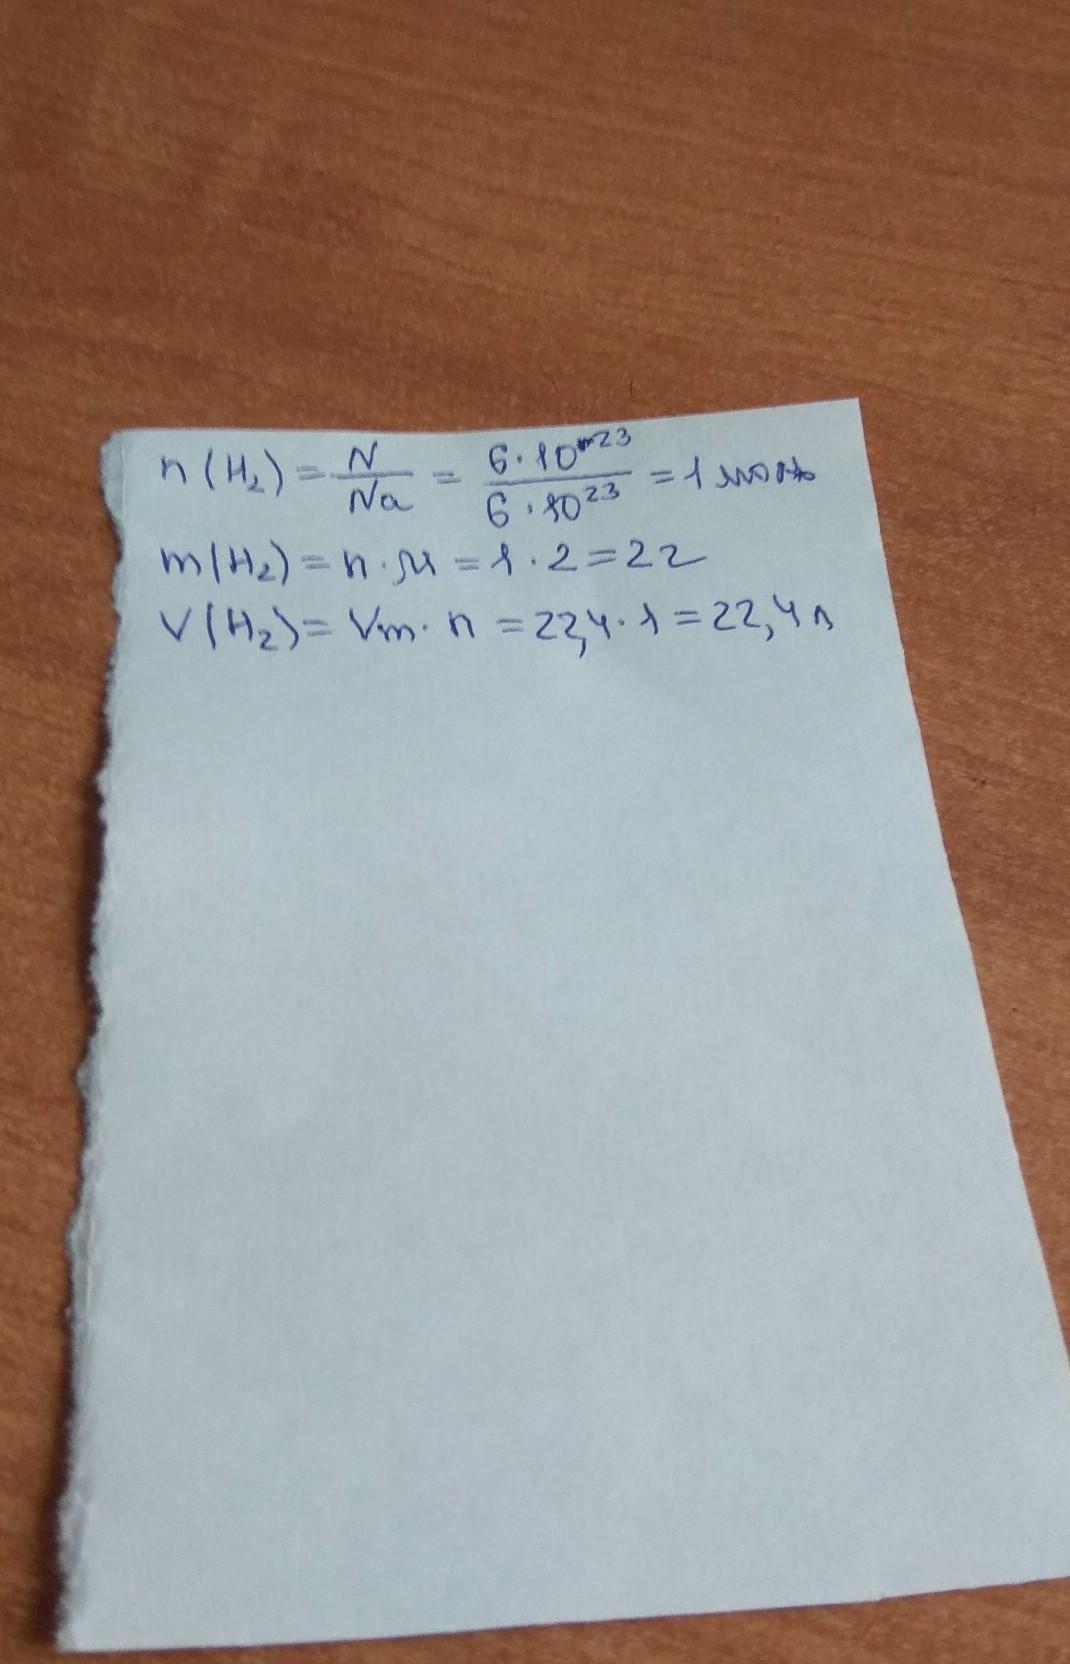 n(H₂) = N/Na = 6·10²³/6·10²³ = 1 моль
m(H₂) = n·M = 1·2 = 2г
V(H₂) = Vm·n = 22,4·1 = 22,4л